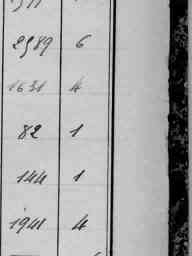 2989 6
1631 4
82 1
144 1
1941 4